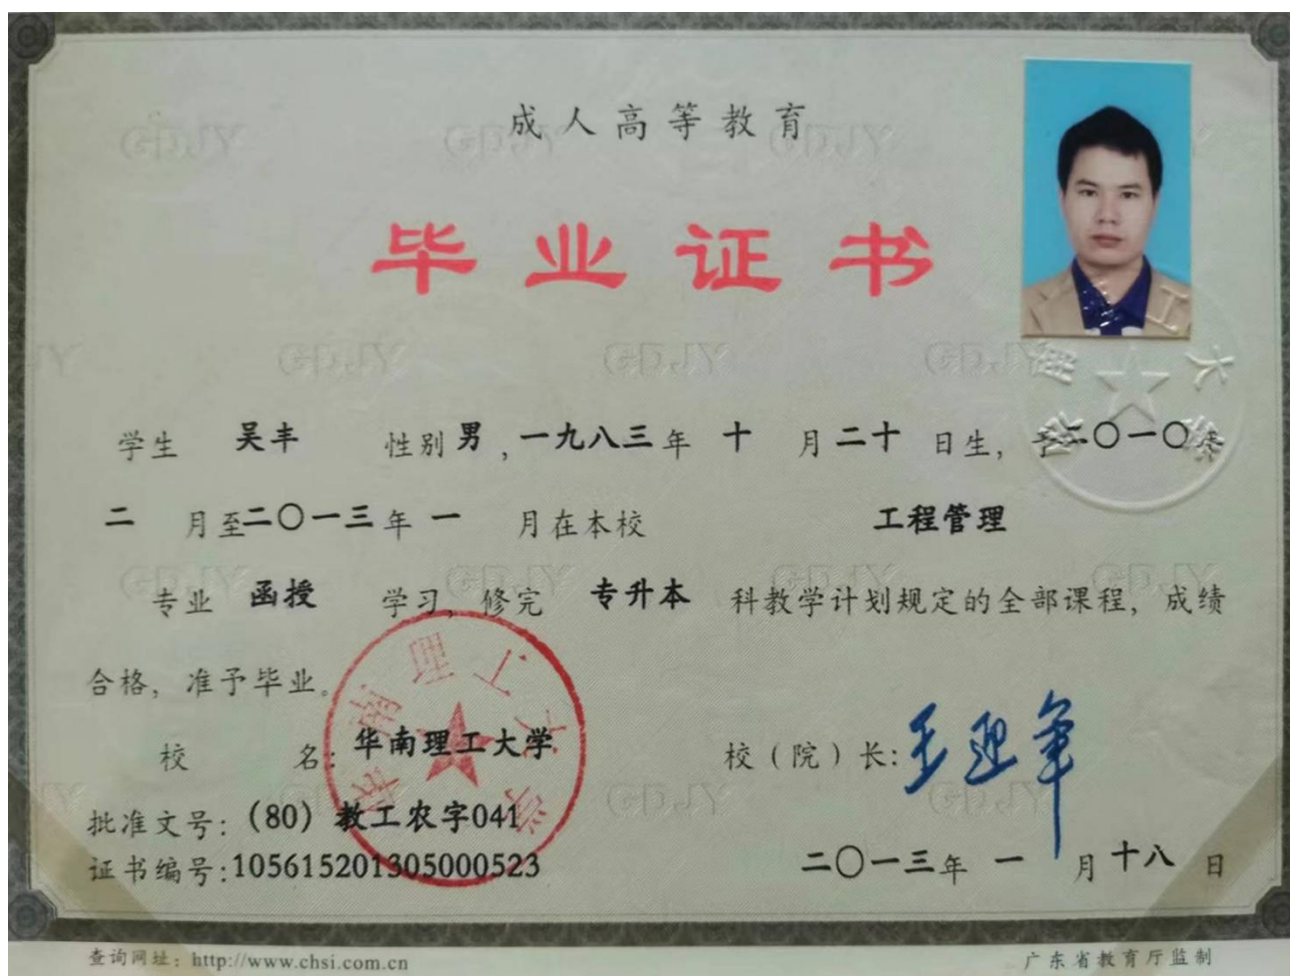 成人高等教育
毕业证书
学生 吴丰 性别 男，一九八三年 十 月 二十 日生，于二〇一〇年
二 月至二〇一三年 一 月在本校 工程管理
专业 函授 学习，修完 专升本 科教学计划规定的全部课程，成绩
合格，准予毕业。
校 名：华南理工大学 校（院）长：王迎军
批准文号：（80）教工农字041
证书编号：105615201305000523 二〇一三年 一 月十八 日
查询网址：http://www.chsi.com.cn 广东省教育厅监制
华南理工大学
GDJY